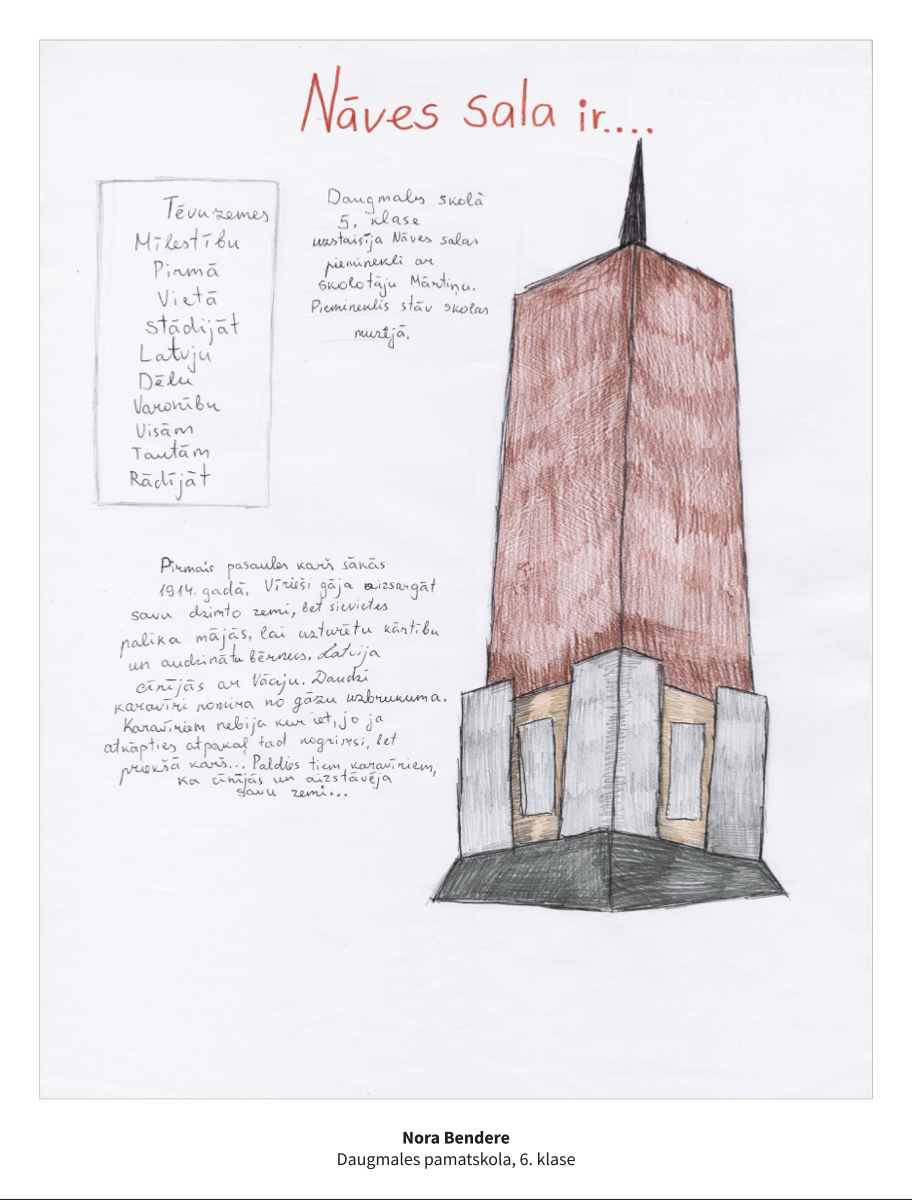 Nāves sala ir....
Tēvuzemes
Mīlestību
Pirmā
Vietā
Stādijāt
Latvju
Dēlu
Varonību
Visām
Tautām
Rādījāt
Daugmales skolā
5. klase
uzstaisīja Nāves salas
pieminekli ar
skolotāju Mārtiņu.
Piemineklis stāv skolas
muzējā.
Pirmais pasaules karš sākās
1914. gadā. Vīrieši gāja aizsargāt
savu dzimto zemi, bet sievietes
palika mājās, lai uzturētu kārtību
un audzinātu bērnus. Latvija
cīnījās ar Vāciju. Daudzi
karavīri nomira no gāzu uzbrukuma.
Karavīriem nebija kur iet, jo ja
atkāpties atpakaļ tad nogrimsi, bet
priekšā karš... Paldies tiem karavīriem,
ka cīnījās un aizstāvēja
savu zemi...
Nora Bendere
Daugmales pamatskola, 6. klase